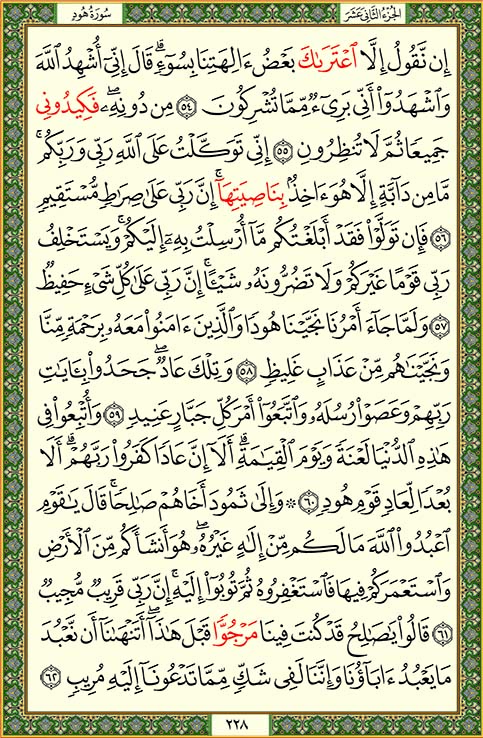 سُورَةُ هُودٍ
الجُزْءُ الثَّانِي عَشَرَ
إِن نَّقُولُ إِلَّا ٱعْتَرَىٰكَ بَعْضُ ءَالِهَتِنَا بِسُوٓءٍۗ قَالَ إِنِّىٓ أُشْهِدُ ٱللَّهَ
وَٱشْهَدُوٓا۟ أَنِّى بَرِىٓءٌ مِّمَّا تُشْرِكُونَ ٥٤ مِن دُونِهِۦۖ فَكِيدُونِى
جَمِيعًا ثُمَّ لَا تُنظِرُونِ ٥٥ إِنِّى تَوَكَّلْتُ عَلَى ٱللَّهِ رَبِّى وَرَبِّكُمۚ
مَّا مِن دَآبَّةٍ إِلَّا هُوَ ءَاخِذٌۢ بِنَاصِيَتِهَآۚ إِنَّ رَبِّى عَلَىٰ صِرَٰطٍ مُّسْتَقِيمٍ
٥٦ فَإِن تَوَلَّوْا۟ فَقَدْ أَبْلَغْتُكُم مَّآ أُرْسِلْتُ بِهِۦٓ إِلَيْكُمْۚ وَيَسْتَخْلِفُ
رَبِّى قَوْمًا غَيْرَكُمْ وَلَا تَضُرُّونَهُۥ شَيْـًٔاۚ إِنَّ رَبِّى عَلَىٰ كُلِّ شَىْءٍ حَفِيظٌ
٥٧ وَلَمَّا جَآءَ أَمْرُنَا نَجَّيْنَا هُودًا وَٱلَّذِينَ ءَامَنُوا۟ مَعَهُۥ بِرَحْمَةٍ مِّنَّا
وَنَجَّيْنَٰهُم مِّنْ عَذَابٍ غَلِيظٍ ٥٨ وَتِلْكَ عَادٌۖ جَحَدُوا۟ بِـَٔايَٰتِ
رَبِّهِمْ وَعَصَوْا۟ رُسُلَهُۥ وَٱتَّبَعُوٓا۟ أَمْرَ كُلِّ جَبَّارٍ عَنِيدٍ ٥٩ وَأُتْبِعُوا۟ فِى
هَٰذِهِ ٱلدُّنْيَا لَعْنَةً وَيَوْمَ ٱلْقِيَٰمَةِۗ أَلَآ إِنَّ عَادًا كَفَرُوا۟ رَبَّهُمْۗ أَلَا
بُعْدًا لِّعَادٍ قَوْمِ هُودٍ ٦٠ ۞ وَإِلَىٰ ثَمُودَ أَخَاهُمْ صَٰلِحًاۚ قَالَ يَٰقَوْمِ
ٱعْبُدُوا۟ ٱللَّهَ مَا لَكُم مِّنْ إِلَٰهٍ غَيْرُهُۥۖ هُوَ أَنشَأَكُم مِّنَ ٱلْأَرْضِ
وَٱسْتَعْمَرَكُمْ فِيهَا فَٱسْتَغْفِرُوهُ ثُمَّ تُوبُوٓا۟ إِلَيْهِۚ إِنَّ رَبِّى قَرِيبٌ مُّجِيبٌ
٦١ قَالُوا۟ يَٰصَٰلِحُ قَدْ كُنتَ فِينَا مَرْجُوًّا قَبْلَ هَٰذَآۖ أَتَنْهَىٰنَآ أَن نَّعْبُدَ
مَا يَعْبُدُ ءَابَآؤُنَا وَإِنَّنَا لَفِى شَكٍّ مِّمَّا تَدْعُونَآ إِلَيْهِ مُرِيبٍ ٦٢
٢٢٨